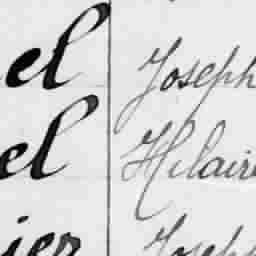 el Joseph
el Hilaire
ier Joseph